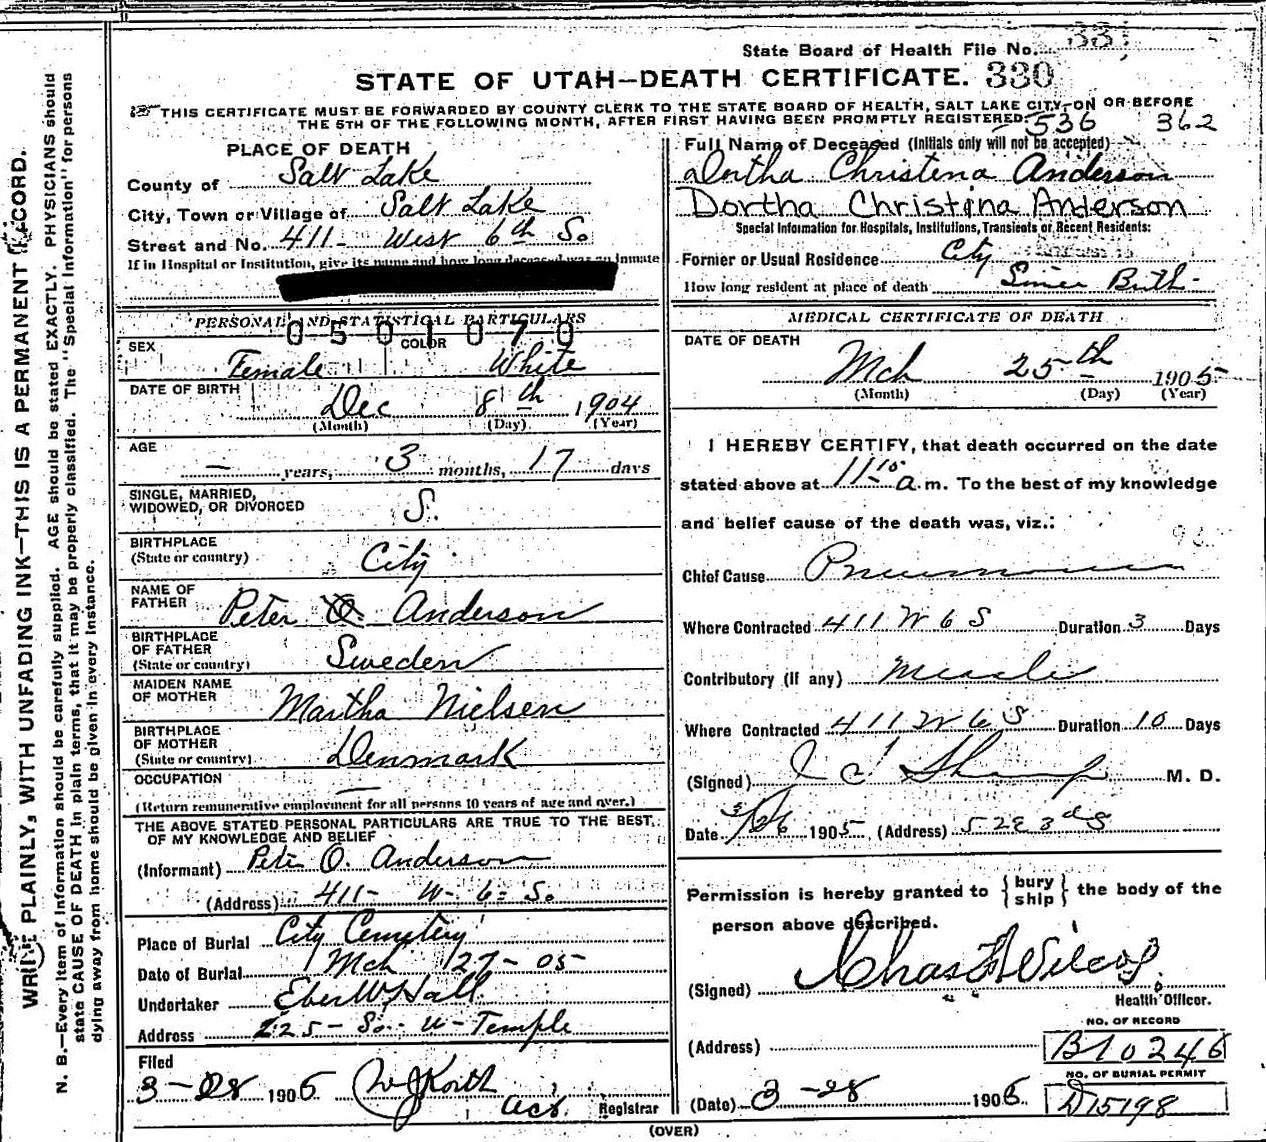 State Board of Health File No. 33
STATE OF UTAH—DEATH CERTIFICATE. 330
THIS CERTIFICATE MUST BE FORWARDED BY COUNTY CLERK TO THE STATE BOARD OF HEALTH, SALT LAKE CITY, ON OR BEFORE
THE 5TH OF THE FOLLOWING MONTH, AFTER FIRST HAVING BEEN PROMPTLY REGISTERED. 536 362
PLACE OF DEATH
County of Salt Lake
City, Town or Village of Salt Lake
Street and No. 411- West 6th So
If in Hospital or Institution, give its name and how long deceased was an Inmate
PERSONAL AND STATISTICAL PARTICULARS
0501070
SEX Female COLOR White
DATE OF BIRTH Dec 8th 1904
(Month) (Day) (Year)
AGE — years, 3 months, 17 days
SINGLE, MARRIED,
WIDOWED, OR DIVORCED S.
BIRTHPLACE
(State or country) City
NAME OF
FATHER Peter O. Anderson
BIRTHPLACE
OF FATHER
(State or country) Sweden
MAIDEN NAME
OF MOTHER Martha Nielsen
BIRTHPLACE
OF MOTHER
(State or country) Denmark
OCCUPATION —
(Return remunerative employment for all persons 10 years of age and over.)
THE ABOVE STATED PERSONAL PARTICULARS ARE TRUE TO THE BEST
OF MY KNOWLEDGE AND BELIEF
(Informant) Peter O. Anderson
(Address) 411- W- 6= So
Place of Burial City Cemetery
Date of Burial Mch 27- 05-
Undertaker Eber W Hall
Address 225- So- W- Temple
Filed
3-28 1905 Act. Registrar
Full Name of Deceased (Initials only will not be accepted)
Dortha Christena Anderson
Dortha Christina Anderson
Special Information for Hospitals, Institutions, Transients or Recent Residents:
Former or Usual Residence City
How long resident at place of death Since Birth-
MEDICAL CERTIFICATE OF DEATH
DATE OF DEATH
Mch 25th 1905
(Month) (Day) (Year)
I HEREBY CERTIFY, that death occurred on the date
stated above at 11 15 a. m. To the best of my knowledge
and belief cause of the death was, viz.:
Chief Cause Pneumonia
Where Contracted 411 W 6 S Duration 3 Days
Contributory (If any) Measles
Where Contracted 411 W 6 S Duration 10 Days
(Signed) M. D.
Date 3/26 1905 (Address) 52 E 3rd S
Permission is hereby granted to { bury ship } the body of the
person above described.
(Signed) Chas F Wilcox
Health Officer.
(Address)
NO. OF RECORD
B10246
NO. OF BURIAL PERMIT
(Date) 3-28 1905 D15198
(OVER)
WRITE PLAINLY, WITH UNFADING INK—THIS IS A PERMANENT RECORD.
N. B.—Every item of information should be carefully supplied. AGE should be stated EXACTLY. PHYSICIANS should
state CAUSE OF DEATH in plain terms, that it may be properly classified. The "Special Information" for persons
dying away from home should be given in every instance.